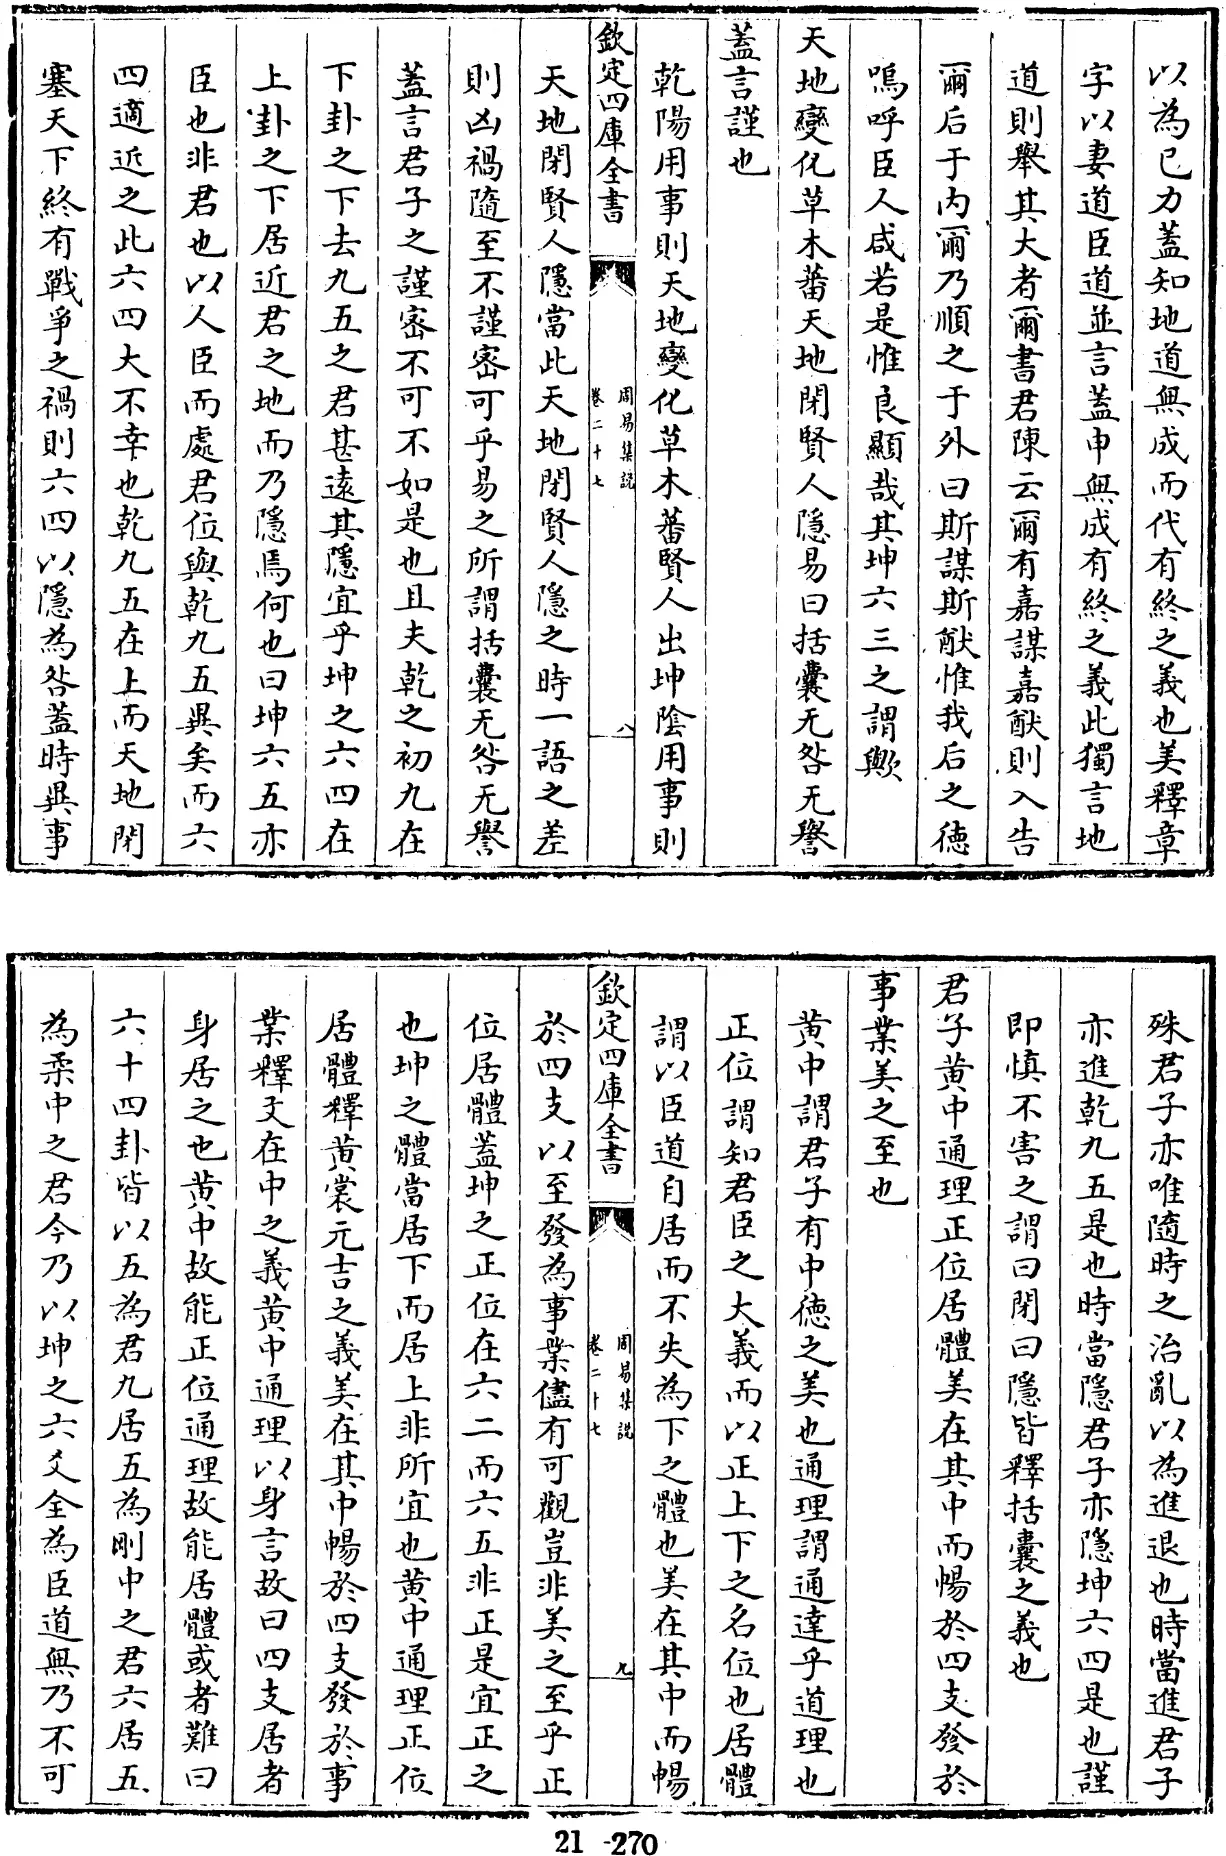 以為已力蓋知地道無成而代有終之義也美釋章
字以妻道臣道並言蓋申無成有終之義此獨言地
道則舉其大者爾書君陳云爾有嘉謀嘉猷則入告
爾后于内爾乃順之于外曰斯謀斯猷惟我后之徳
嗚呼臣人咸若是惟良顯哉其坤六三之謂歟
天地變化草木蕃天地閉賢人隱易曰括囊无咎无譽
蓋言謹也
乾陽用事則天地變化草木蕃賢人出坤陰用事則
欽定四庫全書
周易集説
卷二十七
八
天地閉賢人隱當此天地閉賢人隱之時一語之差
則凶禍隨至不謹宻可乎易之所謂括囊无咎无譽
蓋言君子之謹宻不可不如是也且夫乾之初九在
下卦之下去九五之君甚遠其隱宜乎坤之六四在
上卦之下居近君之地而乃隱焉何也曰坤六五亦
臣也非君也以人臣而處君位與乾九五異矣而六
四適近之此六四大不幸也乾九五在上而天地閉
塞天下終有戰爭之禍則六四以隱為咎蓋時異事
殊君子亦唯隨時之治亂以為進退也時當進君子
亦進乾九五是也時當隱君子亦隱坤六四是也謹
即慎不害之謂曰閉曰隱皆釋括囊之義也
君子黄中通理正位居體美在其中而暢於四支發於
事業美之至也
黄中謂君子有中徳之美也通理謂通達乎道理也
正位謂知君臣之大義而以正上下之名位也居體
謂以臣道自居而不失為下之體也美在其中而暢
欽定四庫全書
周易集説
卷二十七
九
於四支以至發為事業儘有可觀豈非美之至乎正
位居體蓋坤之正位在六二而六五非正是宜正之
也坤之體當居下而居上非所宜也黄中通理正位
居體釋黄裳元吉之義美在其中暢於四支發於事
業釋文在中之義黄中通理以身言故曰四支居者
身居之也黄中故能正位通理故能居體或者難曰
六十四卦皆以五為君九居五為剛中之君六居五
為柔中之君今乃以坤之六爻全為臣道無乃不可
21 -270